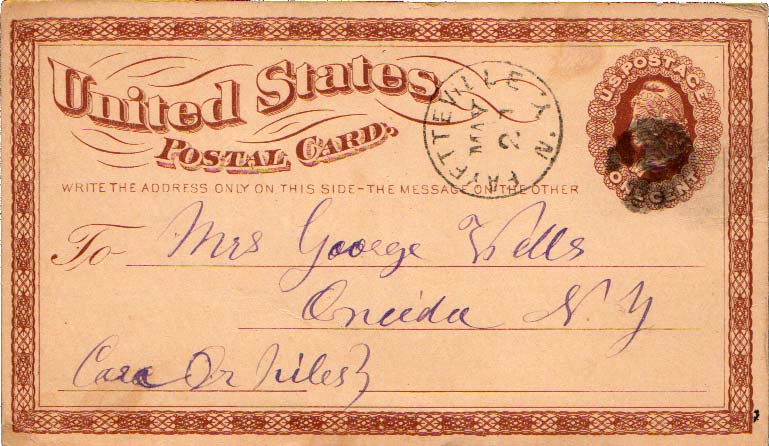 United States
POSTAL CARD.
WRITE THE ADDRESS ONLY ON THIS SIDE-THE MESSAGE ON THE OTHER
U.S. POSTAGE
ONE CENT
FAYETTEVILLE N.Y.
MAY
21
To Mrs George Wells
Oneida N.Y
Care Dr Niles}